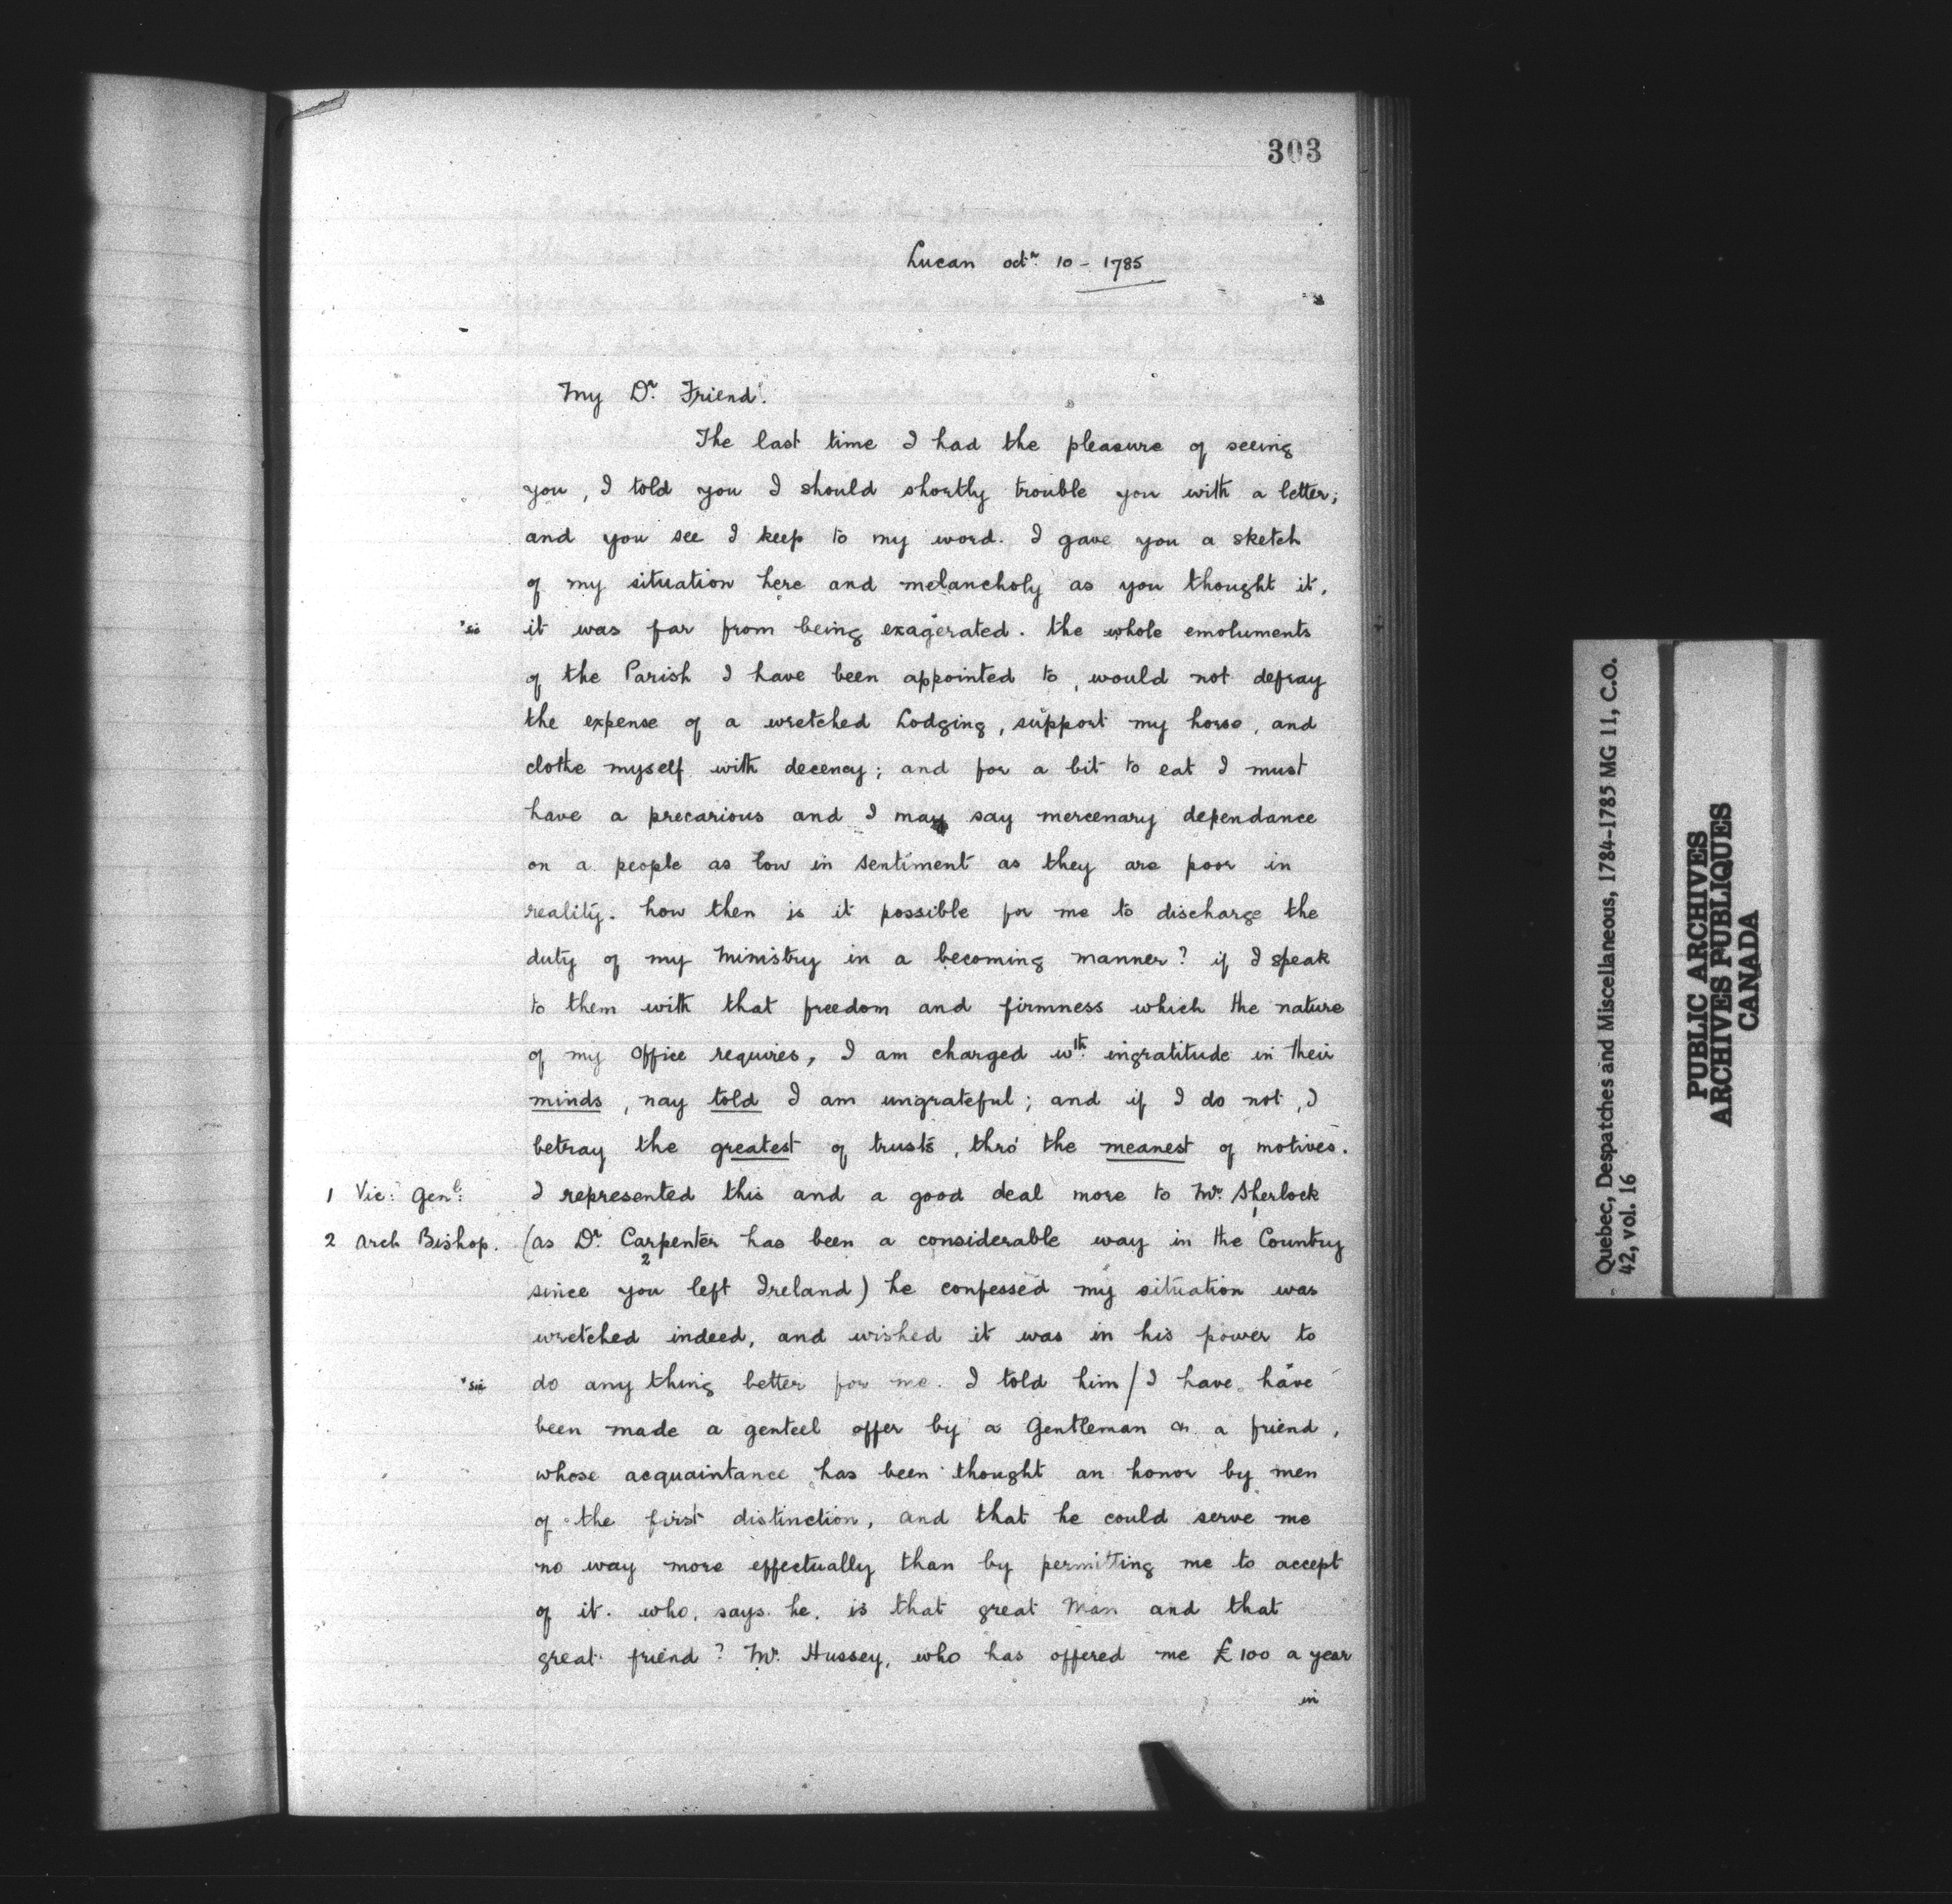 303
Lucan octr. 10 - 1785
My Dr. Friend.
The last time I had the pleasure of seeing
you, I told you I should shortly trouble you with a letter;
and you see I keep to my word. I gave you a sketch
of my situation here and melancholy as you thought it,
*sic it was far from being exagerated. the whole emoluments
of the Parish I have been appointed to, would not defray
the expense of a wretched Lodging, support my horse, and
clothe myself with decency; and for a bit to eat I must
have a precarious and I may say mercenary dependance
on a people as low in sentiment as they are poor in
reality. how then is it possible for me to discharge the
duty of my Ministry in a becoming manner? if I speak
to them with that freedom and firmness which the nature
of my Office requires, I am charged wth. ingratitude in their
minds, nay told I am ungrateful; and if I do not, I
betray the greatest of trusts, thro' the meanest of motives.
1 Vic: Genl: I represented this and a good deal more to Mr. Sherlock 1
2 Arch Bishop. (as Dr. Carpenter 2 has been a considerable way in the Country
since you left Ireland) he confessed my situation was
wretched indeed, and wished it was in his power to
*sic do any thing better for me. I told him / I have have*
been made a genteel offer by a Gentleman as a friend,
whose acquaintance has been thought an honor by men
of the first distinction, and that he could serve me
no way more effectually than by permitting me to accept
of it. who, says he, is that great Man and that
great friend? Mr. Hussey, who has offered me £100 a year
in
Quebec, Despatches and Miscellaneous, 1784-1785 MG 11, C.O.
42, vol. 16
PUBLIC ARCHIVES
ARCHIVES PUBLIQUES
CANADA